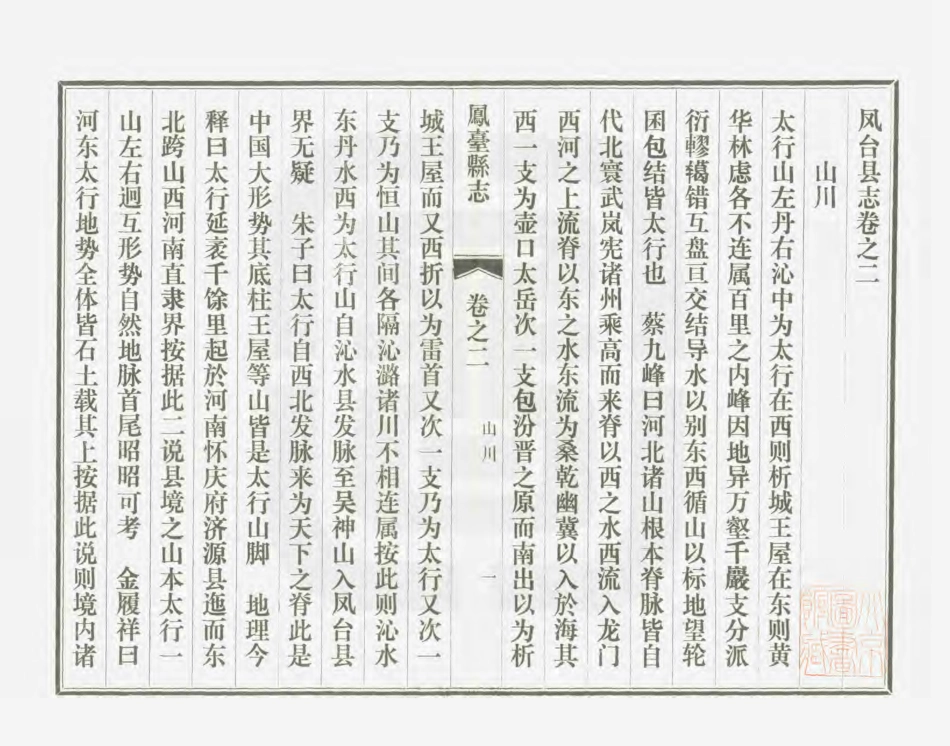 凤台县志卷之二
山川
太行山左丹右沁中为太行在西则析城王屋在东则黄
华林虑各不连属百里之内峰因地异万壑千巖支分派
衍轇轕错互盘亘交结导水以别东西循山以标地望轮
囷包结皆太行也　蔡九峰曰河北诸山根本脊脉皆自
代北寰武岚宪诸州乘高而来脊以西之水西流入龙门
西河之上流脊以东之水东流为桑乾幽冀以入於海其
西一支为壶口太岳次一支包汾晋之原而南出以为析
鳳臺縣志　卷之二　山川　一
城王屋而又西折以为雷首又次一支乃为太行又次一
支乃为恒山其间各隔沁潞诸川不相连属按此则沁水
东丹水西为太行山自沁水县发脉至吴神山入凤台县
界无疑　朱子曰太行自西北发脉来为天下之脊此是
中国大形势其底柱王屋等山皆是太行山脚　地理今
释曰太行延袤千馀里起於河南怀庆府济源县迤而东
北跨山西河南直隶界按据此二说县境之山本太行一
山左右迴互形势自然地脉首尾昭昭可考　金履祥曰
河东太行地势全体皆石土载其上按据此说则境内诸